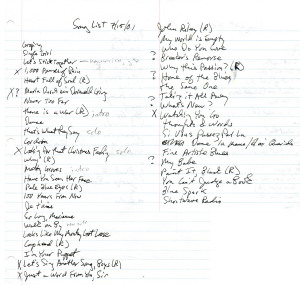 Song List 7/15/01
Groping
Single Girl
Let's Stick Together
X 1,000 Pounds of Rain
Heart Full of Soul (R)
X? Maria Quit
Never Too Far
There is a War (R) intro
Dance
That's what they Say solo
Gordon
X Looking for that Christmas Feeling solo
Why? (R)
Matty Groves intro
Have You Seen Her Face
Pale Blue Eyes (R)
100 Years From Now
Je t'aime
So Long, Marianne
Walk on By
Looks Like My Monkey Got Loose
Copehead (R)
I'm Your Puppet
X Let's Sing Another Song, Boys (R)
X Just a Word From You, Sir
John Riley (R)
My World is Empty
Who Do You Love
? Remorse
Why this Passion? (R)
? Home of the Blues
The Same One
? Taking it All Away
? What's New?
X Watching You Go
Thoughts & Words
Si Vas Para
Dame La Mano
Fine Artiste Blues
? My Babe
Paint It, Black (R)
You Can't Judge a Book
Blue Spark
Shortwave Radio